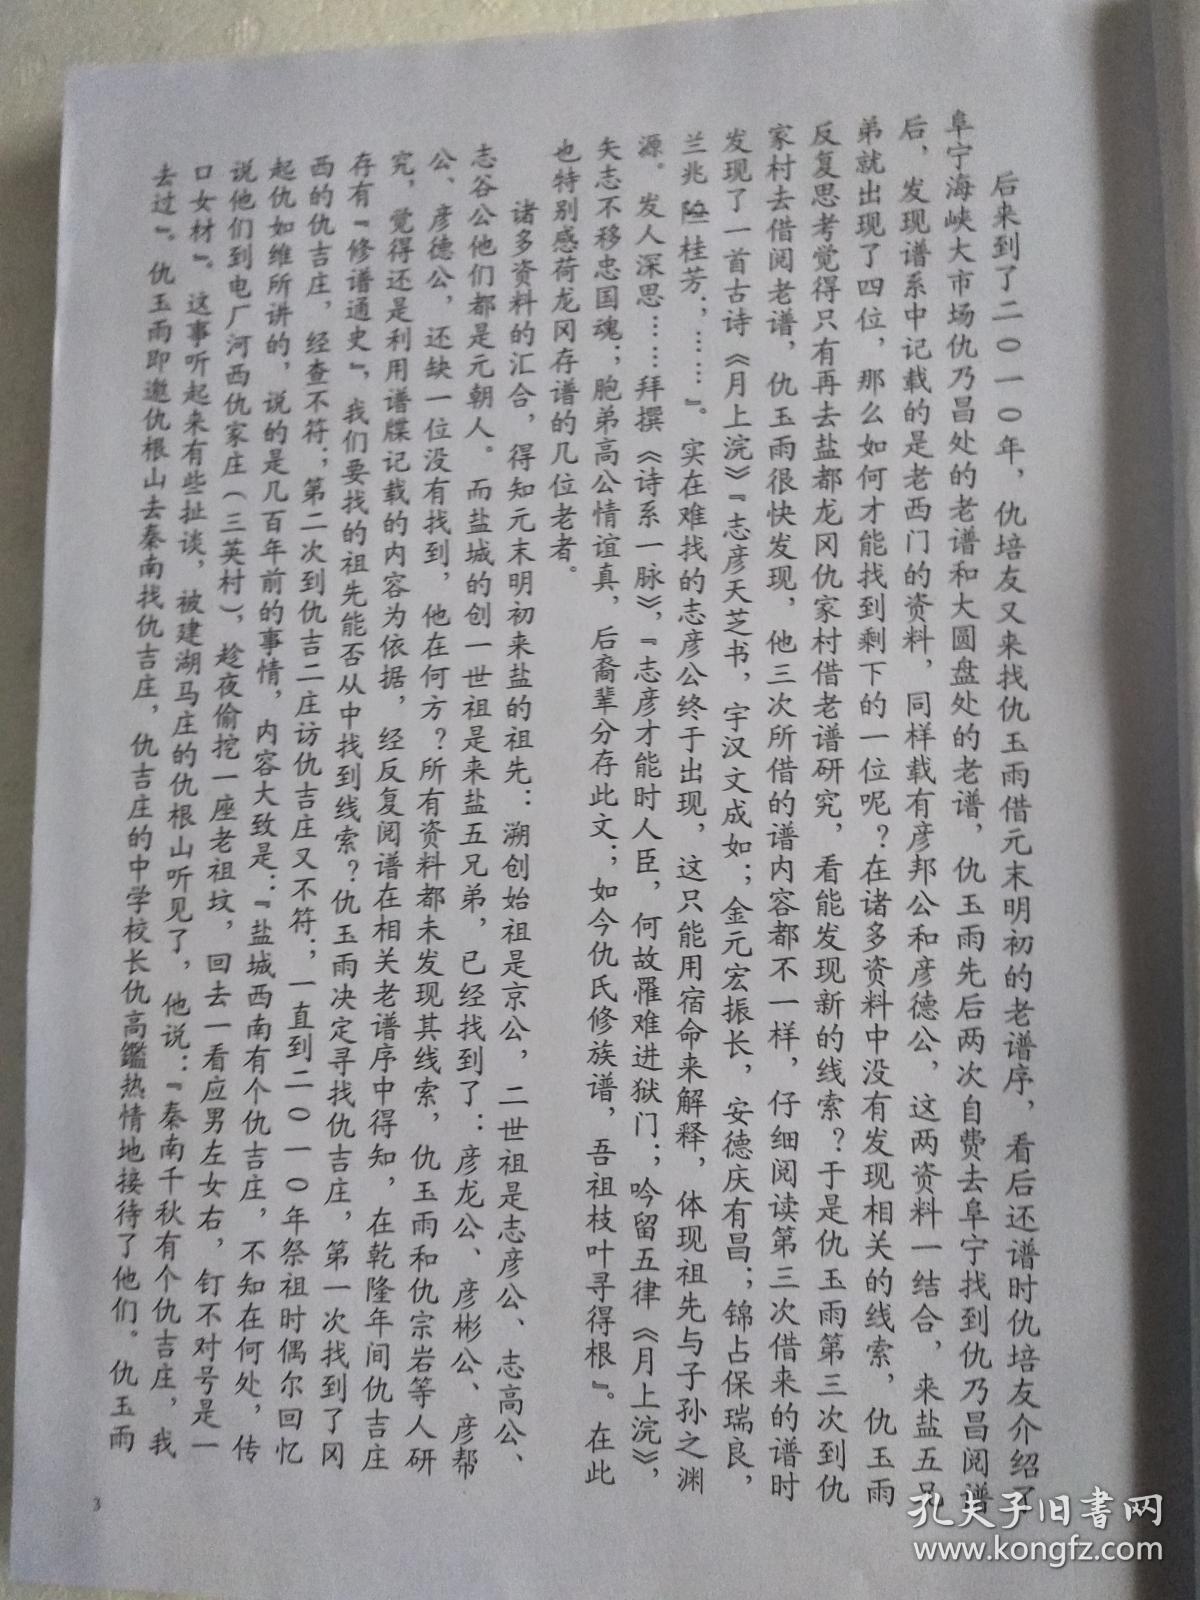 后来到了二〇一〇年，仇培友又来找仇玉雨借元末明初的老谱序，看后还谱时仇培友介绍了
阜宁海峡大市场仇乃昌处的老谱和大圆盘处的老谱，仇玉雨先后两次自费去阜宁找到仇乃昌阅谱
后，发现谱系中记载的是老西门的资料，同样载有彦邦公和彦德公，这两资料一结合，来盐五兄
弟就出现了四位，那么如何才能找到剩下的一位呢？在诸多资料中没有发现相关的线索，仇玉雨
反复思考觉得只有再去盐都龙冈仇家村借老谱研究，看能发现新的线索？于是仇玉雨第三次到仇
家村去借阅老谱，仇玉雨很快发现，他三次所借的谱内容都不一样，仔细阅读第三次借来的谱时
发现了一首古诗《月上浣》『志彦天芝书，宇汉文成如；金元宏振长，安德庆有昌；锦占保瑞良，
兰兆陞桂芳；……』。实在难找的志彦公终于出现，这只能用宿命来解释，体现祖先与子孙之渊
源。发人深思……拜撰《诗系一脉》，『志彦才能时人臣，何故罹难进狱门；吟留五律《月上浣》，
矢志不移忠国魂；胞弟高公情谊真，后裔辈分存此文；如今仇氏修族谱，吾祖枝叶寻得根』。在此
也特别感荷龙冈存谱的几位老者。
诸多资料的汇合，得知元末明初来盐的祖先：溯创始祖是京公，二世祖是志彦公、志高公、
志谷公他们都是元朝人。而盐城的创一世祖是来盐五兄弟，已经找到了：彦龙公、彦彬公、彦帮
公、彦德公，还缺一位没有找到，他在何方？所有资料都未发现其线索，仇玉雨和仇宗岩等人研
究，觉得还是利用谱牒记载的内容为依据，经反复阅谱在相关老谱序中得知，在乾隆年间仇吉庄
存有『修谱通史』，我们要找的祖先能否从中找到线索？仇玉雨决定寻找仇吉庄，第一次找到了冈
西的仇吉庄，经查不符；第二次到仇吉二庄访仇吉庄又不符；一直到二〇一〇年祭祖时偶尔回忆
起仇如维所讲的，说的是几百年前的事情，内容大致是：『盐城西南有个仇吉庄，不知在何处，传
说他们到电厂河西仇家庄（三英村），趁夜偷挖一座老祖坟，回去一看应男左女右，钉不对号是一
口女材』。这事听起来有些扯谈，被建湖马庄的仇根山听见了，他说：『秦南千秋有个仇吉庄，我
去过』。仇玉雨即邀仇根山去秦南找仇吉庄，仇吉庄的中学校长仇高鑑热情地接待了他们。仇玉雨
3
孔夫子旧书网
www.kongfz.com